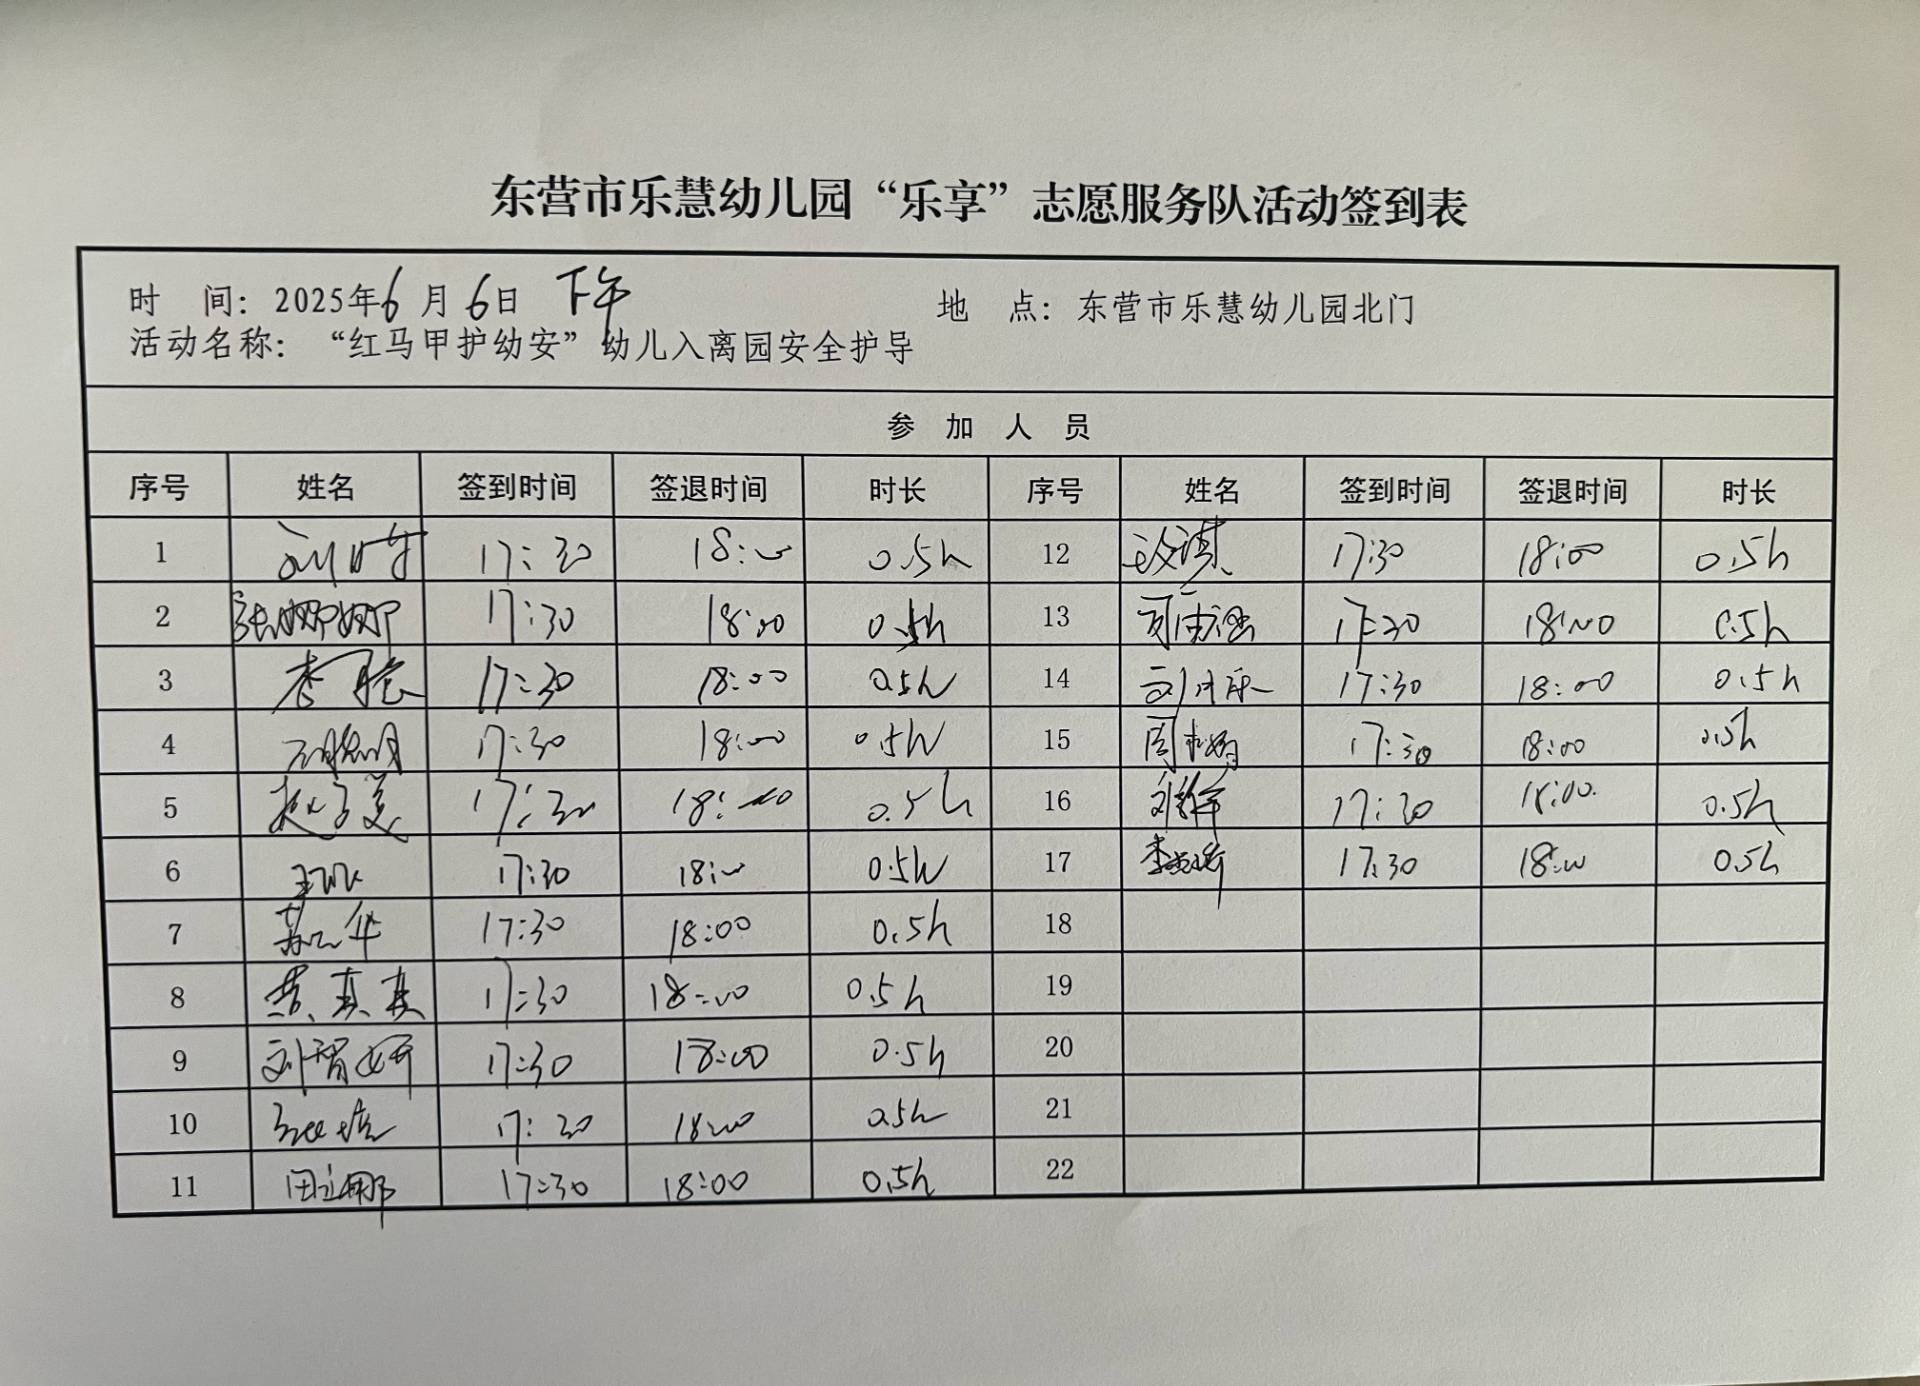 东营市乐慧幼儿园“乐享”志愿服务队活动签到表
时 间：2025年6月6日 下午 地 点：东营市乐慧幼儿园北门
活动名称：“红马甲护幼安”幼儿入离园安全护导
参 加 人 员
序号 姓名 签到时间 签退时间 时长 序号 姓名 签到时间 签退时间 时长
1 17:30 18:00 0.5h 12 17:30 18:00 0.5h
2 张娜娜 17:30 18:00 0.5h 13 17:30 18:00 0.5h
3 17:30 18:00 0.5h 14 17:30 18:00 0.5h
4 17:30 18:00 0.5h 15 17:30 18:00 0.5h
5 17:30 18:00 0.5h 16 17:30 18:00 0.5h
6 17:30 18:00 0.5h 17 17:30 18:00 0.5h
7 17:30 18:00 0.5h 18
8 黄真真 17:30 18:00 0.5h 19
9 刘智妍 17:30 18:00 0.5h 20
10 17:30 18:00 0.5h 21
11 17:30 18:00 0.5h 22